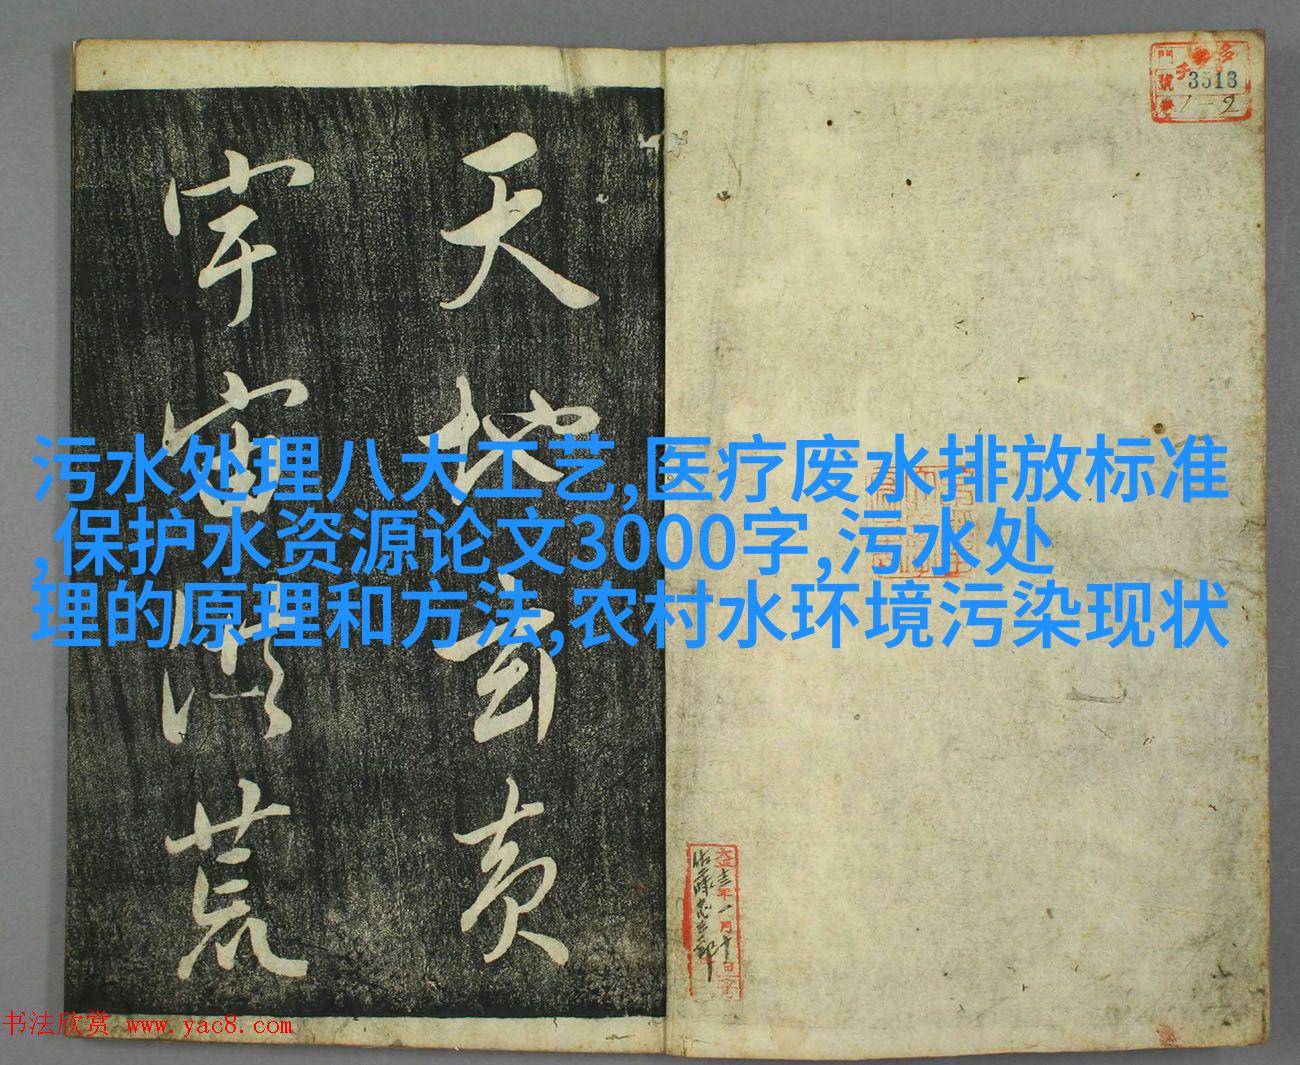 天地玄黄
宇宙洪荒
3513
1-2
污水处理八大工艺,医疗废水排放标准
,保护水资源论文3000字,污水处
理的原理和方法,农村水环境污染现状
大正十三年一月十日
书法欣赏 www.yac8.com